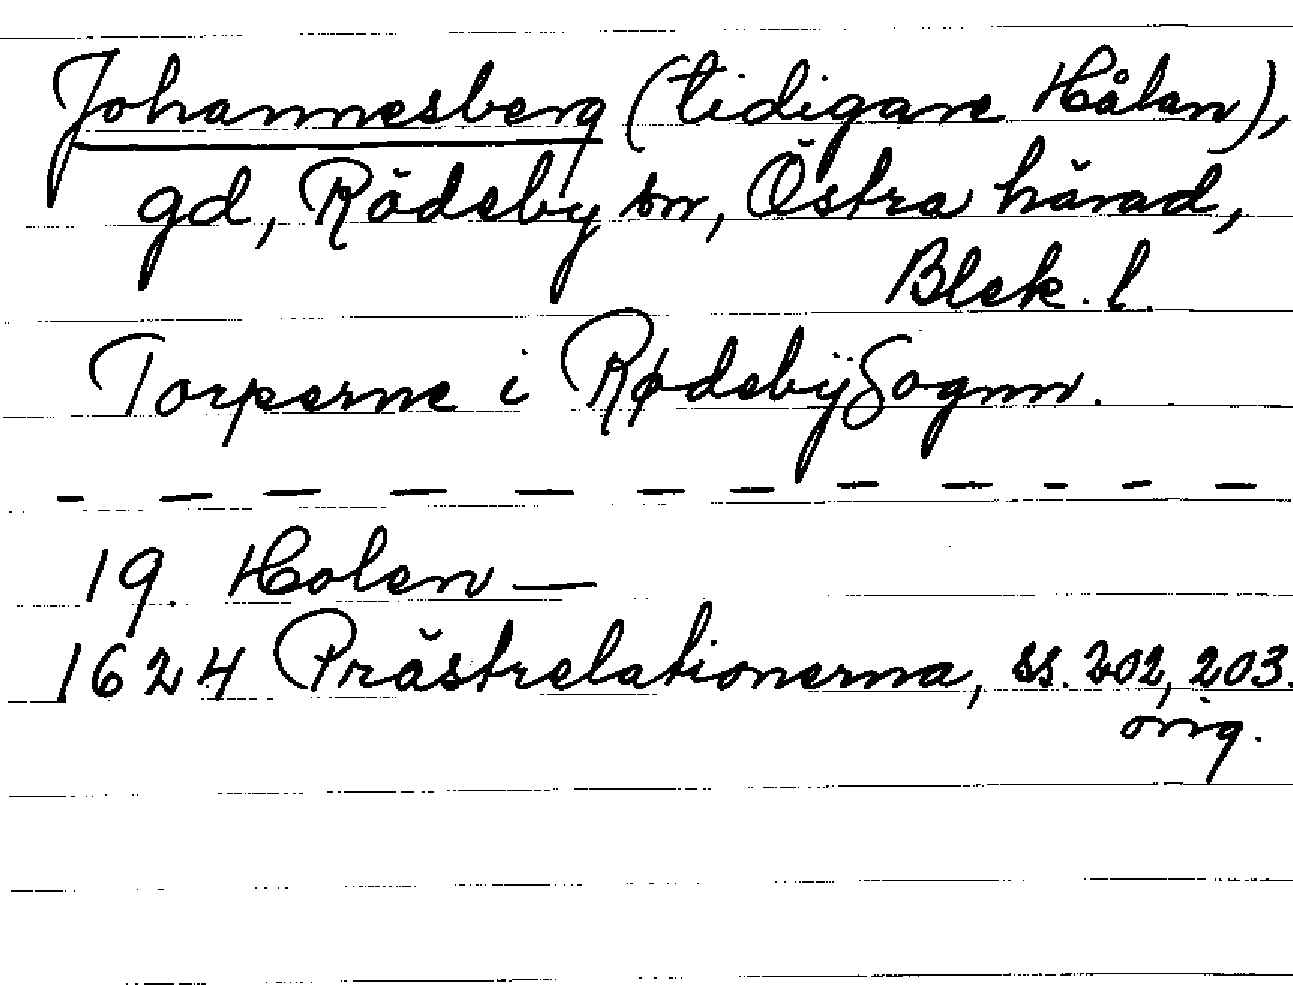 Johannesberg (tidigare Hålan),
gd, Rödeby sn, Östra härad,
Blek. l.
Torperne i RødebÿSognn.
19. Holen —
1624 Prästrelationerna, ss. 202, 203.
orig.